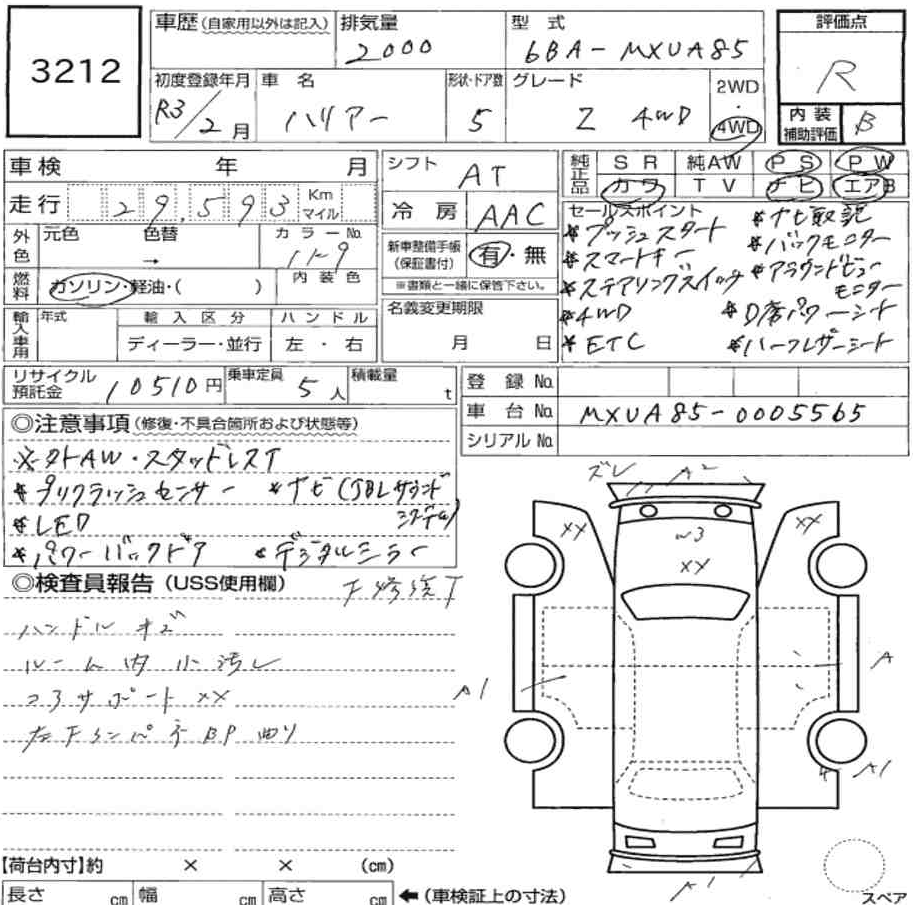 3212
車歴(自家用以外は記入) 排気量 2000 型式 6BA-MXUA85
評価点 R
初度登録年月 R3/2月 車名 ハリアー 形状・ドア数 5 グレード Z 4WD 2WD・4WD
内装補助評価 B
車検 年 月
シフト AT
純正品 SR 純AW PS PW
カワ TV ナビ エアB
走行 29,593 Km マイル
冷房 AAC
外色 元色 色替 → カラーNo.
新車整備手帳(保証書付) 有・無
※書類と一緒に保管下さい。
燃料 ガソリン・軽油・( ) 内装色
セールスポイント
*プッシュスタート *ナビ取説
*スマートキー *バックモニター
*ステアリングスイッチ *アラウンドビューモニター
*4WD *D席パワーシート
*ETC *ハーフレザーシート
名義変更期限 月 日
輸入車用 年式 輸入区分 ハンドル
ディーラー・並行 左・右
リサイクル預託金 10510円 乗車定員 5人 積載量 t
登録No.
車台No. MXUA85-0005565
シリアルNo.
◎注意事項(修復・不具合箇所および状態等)
※外AW・スタッドレスT
*プリクラッシュセンサー *ナビ(JBLサウンドシステム)
*LED
*パワーバックドア *デジタルミラー
◎検査員報告(USS使用欄)
ハンドルキズ
ルーム内小汚レ
コアサポートXX
左Fインパネ BP 曲り
ズレ A2
XX XX
W3
XX
A1 A
A1
A1
スペア
【荷台内寸】約 × × (cm)
長さ cm 幅 cm 高さ cm ←(車検証上の寸法)